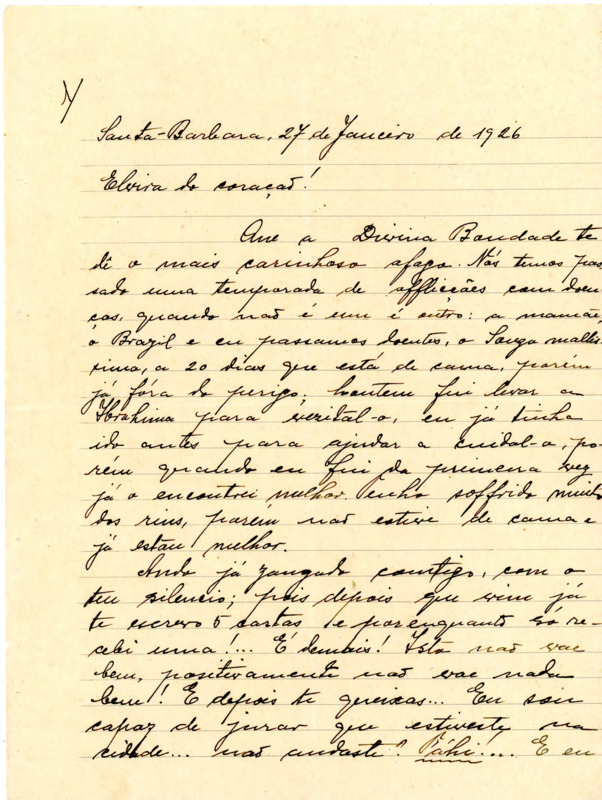 Santa-Barbara, 27 de Janeiro de 1926
Elvira do coração!
Que a Divina Bondade te
dê o mais carinhoso afago. Nós temos pas
sado uma temporada de afflicções com doen
ças, quando não é um é outro: a mamãe,
o Brazil e eu passamos doentes, o Souza mallis
sima, a 20 dias que está de cama, porém
já fóra do perigo; hontem fui levar a
Ibrahima para vezital-o, eu já tinha
ido antes para ajudar a cuidal-o, po-
rém quando eu fui da primera vez
já o encontrei melhor, enho soffrido muito
dos rins, porém não estive de cama e
já estou melhor.
Ando já zangada comtigo, com o
teu silencio; pois depois que vim já
te escrevo 5 cartas e por enquanto só re-
cebi uma!... É demais! Isto não vae
bem, positivamente não vae nada
bem! E depois te queixas... Eu sou
capaz de jurar que estiveste na
cidade... não andaste? .... E eu